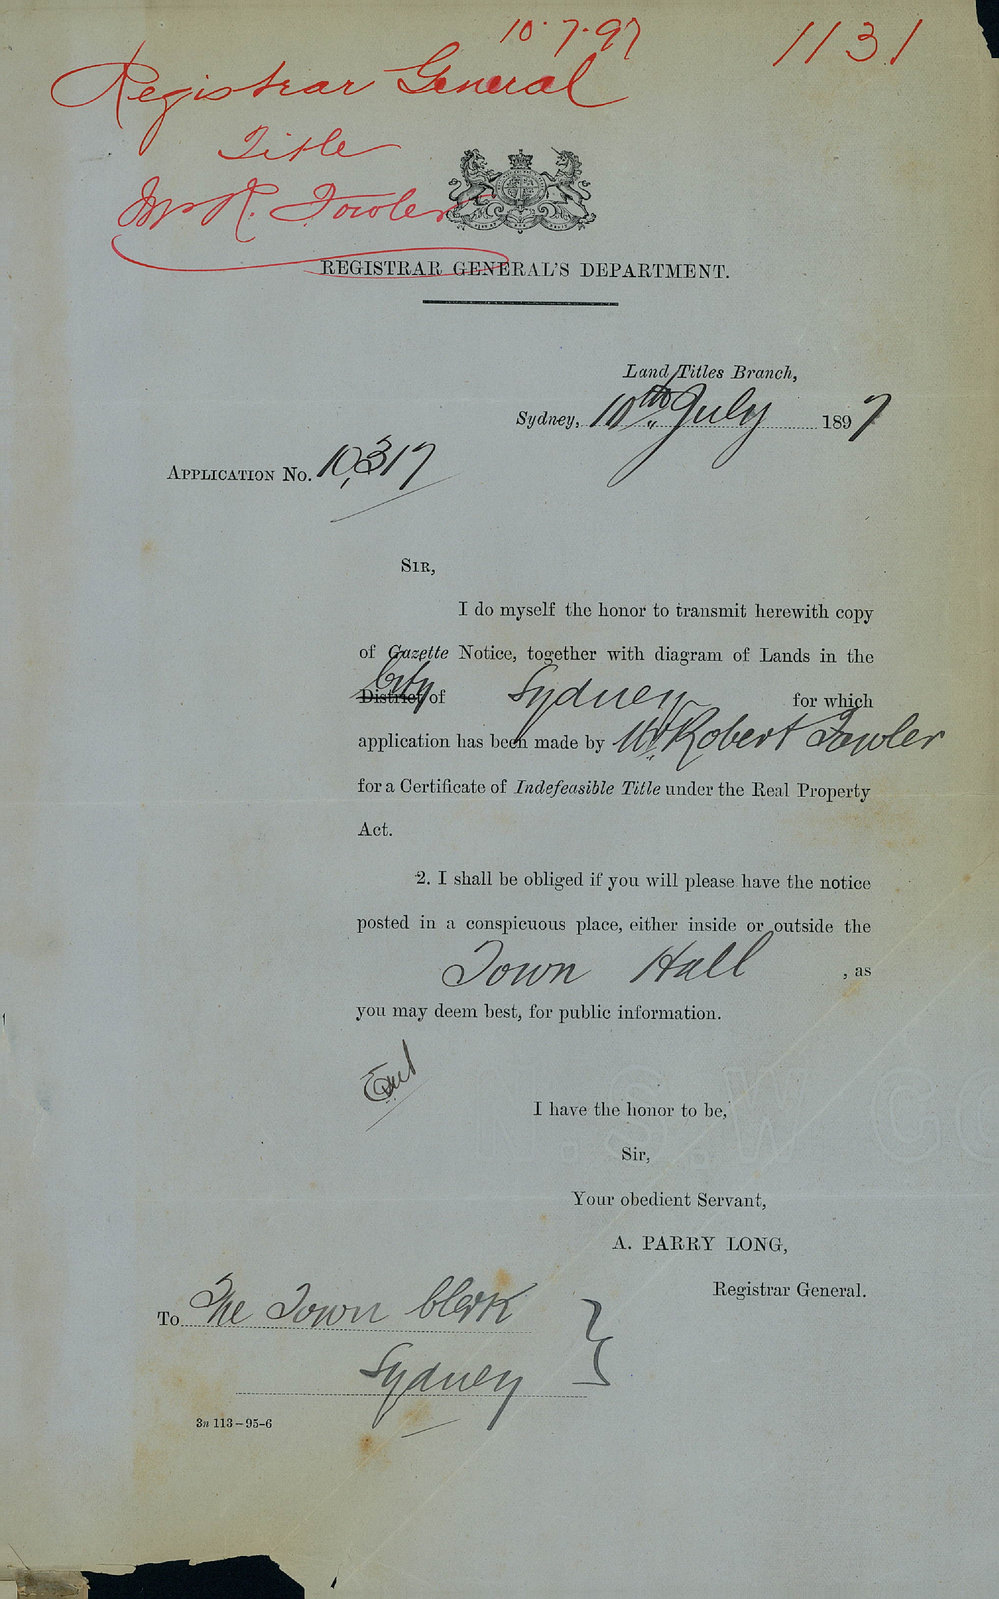 10.7.97
1131
Registrar General
Title
Mr R. Fowler
REGISTRAR GENERAL'S DEPARTMENT.
Land Titles Branch,
Sydney, 10th July 1897
APPLICATION No. 10,317
SIR,
I do myself the honor to transmit herewith copy
of Gazette Notice, together with diagram of Lands in the
City
District of Sydney for which
application has been made by Mr Robert Fowler
for a Certificate of Indefeasible Title under the Real Property
Act.
2. I shall be obliged if you will please have the notice
posted in a conspicuous place, either inside or outside the
Town Hall, as
you may deem best, for public information.
I have the honor to be,
Sir,
Your obedient Servant,
A. PARRY LONG,
Registrar General.
To The Town Clerk
Sydney
3n 113–95–6
N.S.W GO